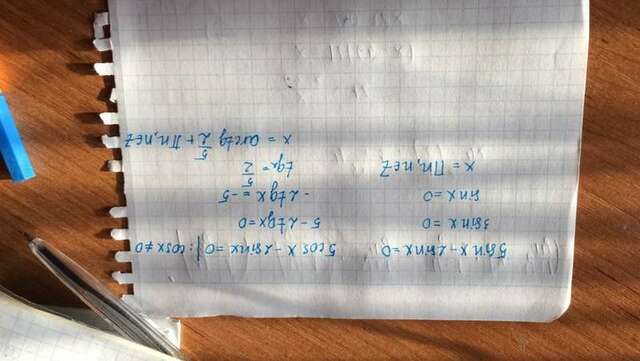 5sinx-2sinx=0
3sinx=0
sinx=0
x=πn, n∈Z
5cosx-2sinx=0 |: cosx≠0
5-2tgx=0
-2tgx=-5
tgx=5/2
x=arctg 5/2+πn, n∈Z